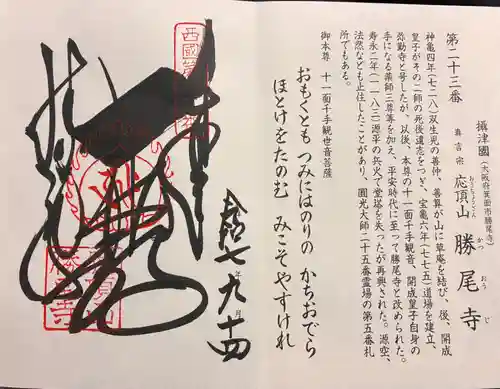 第二十三番
攝津國
(大阪府箕面市勝尾寺)
真言宗
応頂山 勝尾寺
おうちょうざん かつおうじ
神亀四年(七二八)双生児の善仲、善算が山に草庵を結び、後、開成
皇子がその二師の死後遺志をつぎ、宝亀六年(七七五)道場を建立、
弥勒寺と号したが、以後、本尊の十一面千手観音、開成皇子自身の
手になる薬師三尊等を加え、平安時代に至って勝尾寺と改められた。
寿永二年(一一八三)源平の兵火で堂塔を失ったが再興された。源空、
法然なども止住したことがあり、圓光大師二十五番霊場の第五番札
所でもある。
御本尊 十一面千手観世音菩薩
おもくとも つみにはのりの かちおでら
ほとけをたのむ みこそやすけれ
七年九月十四
西國